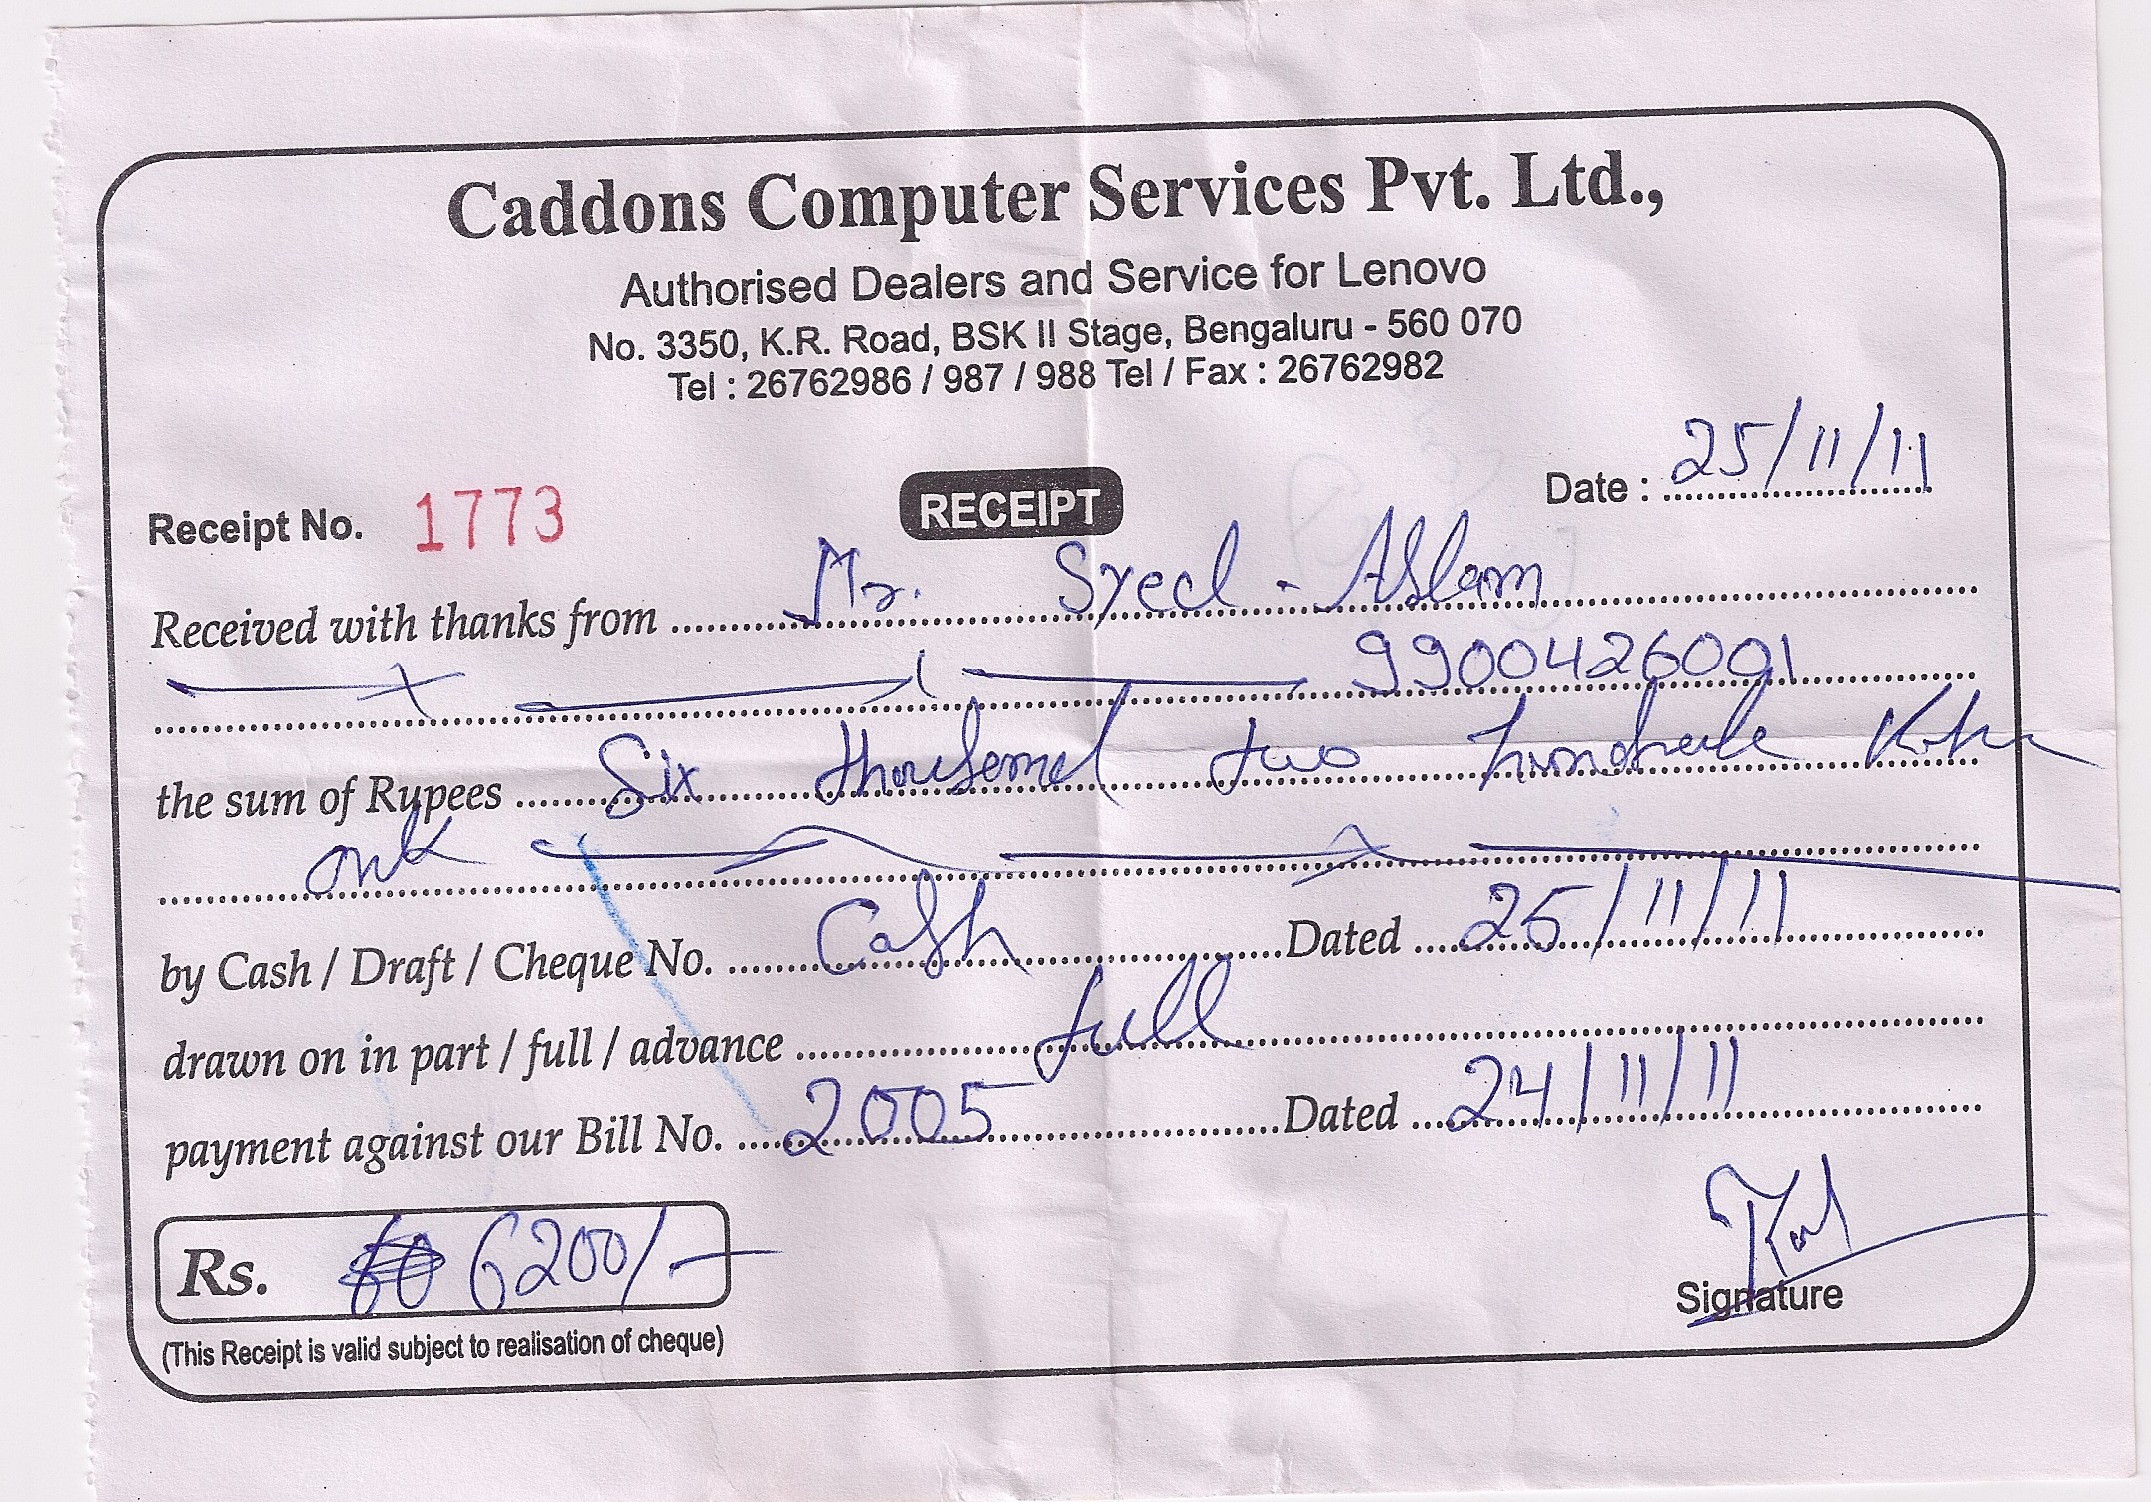 Caddons Computer Services Pvt. Ltd.,
Authorised Dealers and Service for Lenovo
No. 3350, K.R. Road, BSK II Stage, Bengaluru - 560 070
Tel : 26762986 / 987 / 988 Tel / Fax : 26762982
Date : 25/11/11
Receipt No. 1773 RECEIPT
Received with thanks from Mr. Syed - Aslam
9900426001
the sum of Rupees Six thousand two hundred
by Cash / Draft / Cheque No. Cash Dated 25/11/11
drawn on in part / full / advance full
payment against our Bill No. 2005 Dated 24/11/11
Rs. 6200/-
Signature
(This Receipt is valid subject to realisation of cheque)